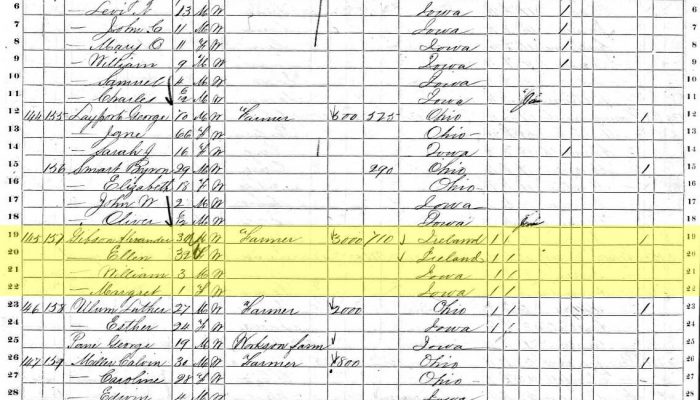 6 — Levi J 13 M W Iowa 6
7 — John C 11 M W Iowa 1 7
8 — Mary O 11 F W Iowa 1 8
9 — William 9 M W Iowa 1 9
10 — Samuel 4 M W Iowa 10
11 — Charles M W Iowa 11
12 144 155 Layport George 70 M W Farmer 500 525 Ohio 1 12
13 — Jane 66 F W Ohio 13
14 — Sarah J 16 F W Iowa 1 14
15 156 Smart Byron 29 M W 290 Ohio 1 15
16 — Elizabeth 18 F W Ohio 16
17 — John W 2 M W Iowa 17
18 — Oliver M W Iowa 18
19 145 157 Gibson Alexander 30 M W Farmer 3000 710 Ireland 1 1 1 19
20 — Ellen 32 F W Ireland 1 1 20
21 — William 3 M W Iowa 1 1 21
22 — Margret 1 F W Iowa 1 1 22
23 146 158 Luther 27 M W Farmer 2000 Ohio 1 1 1 23
24 — Esther 24 F W Iowa 1 1 24
25 George 19 M W Works on farm Iowa 25
26 147 159 Miller Calvin 30 M W Farmer 800 Ohio 1 26
27 — Caroline 28 F W Ohio 27
28 — Edwin 4 M W Iowa 28